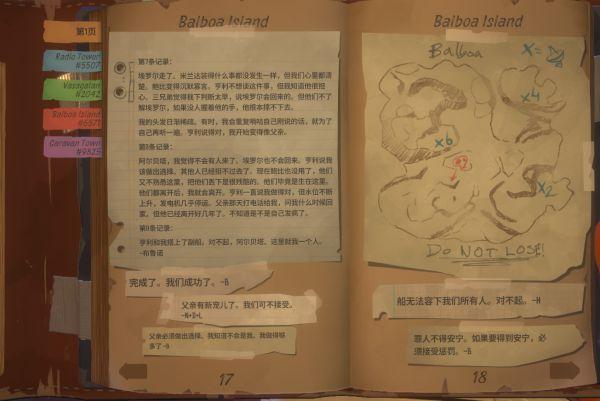 Balboa Island
第1页
Radio Tower
#5507
Vasagatan
#2042
Balboa Island
#6571
Caravan Town
#9525
第7条记录:
埃罗尔走了。米兰达装得什么事都没发生一样，但我们心里都清
楚。她比变得沉默寡言。亨利不想谈这件事，但我知道他很担
心。三兄弟觉得我下判断太早，说埃罗尔会回来的。但他们不了
解埃罗尔。如果没人握着他的手，他根本撑不下去。
我的头发日渐稀疏。有时，我会重复嘀咕自己刚说的话，就为了
自己再听一遍。亨利说得对，我开始变得像父亲。
第8条记录:
阿尔贝塔，我觉得不会有人来了。埃罗也不会回来。亨利说我
该做出选择。其他人已经扭不过去了。现在鲍比也没用了，他们
又不熟悉这里，把他们丢下是很残酷的。他们毕竟是生在这里。
他们都离开后，我就会离开。亨利一直说我做得对，但水位不断
上升，发电机几乎停运。父亲那天打电话给我，问我什么时候回
家。但他已经离开好几年了。不知道是不是自己发疯了。
第9条记录:
亨利和我搭上了副船。对不起，阿尔贝塔。这里就我一个人。
-布鲁诺
完成了。我们成功了。-B
父亲有新宠儿了。我们可不接受。
-N+D+L
父亲必须做出选择。我知道不会是我。我做得够
多了 -B
17
Balboa Island
Balboa
X=
x4
x6
x2
DO NOT LOSE!
船无法容下我们所有人。对不起。-H
罪人不得安宁。如果要得到安宁，必
须接受惩罚。-B
18